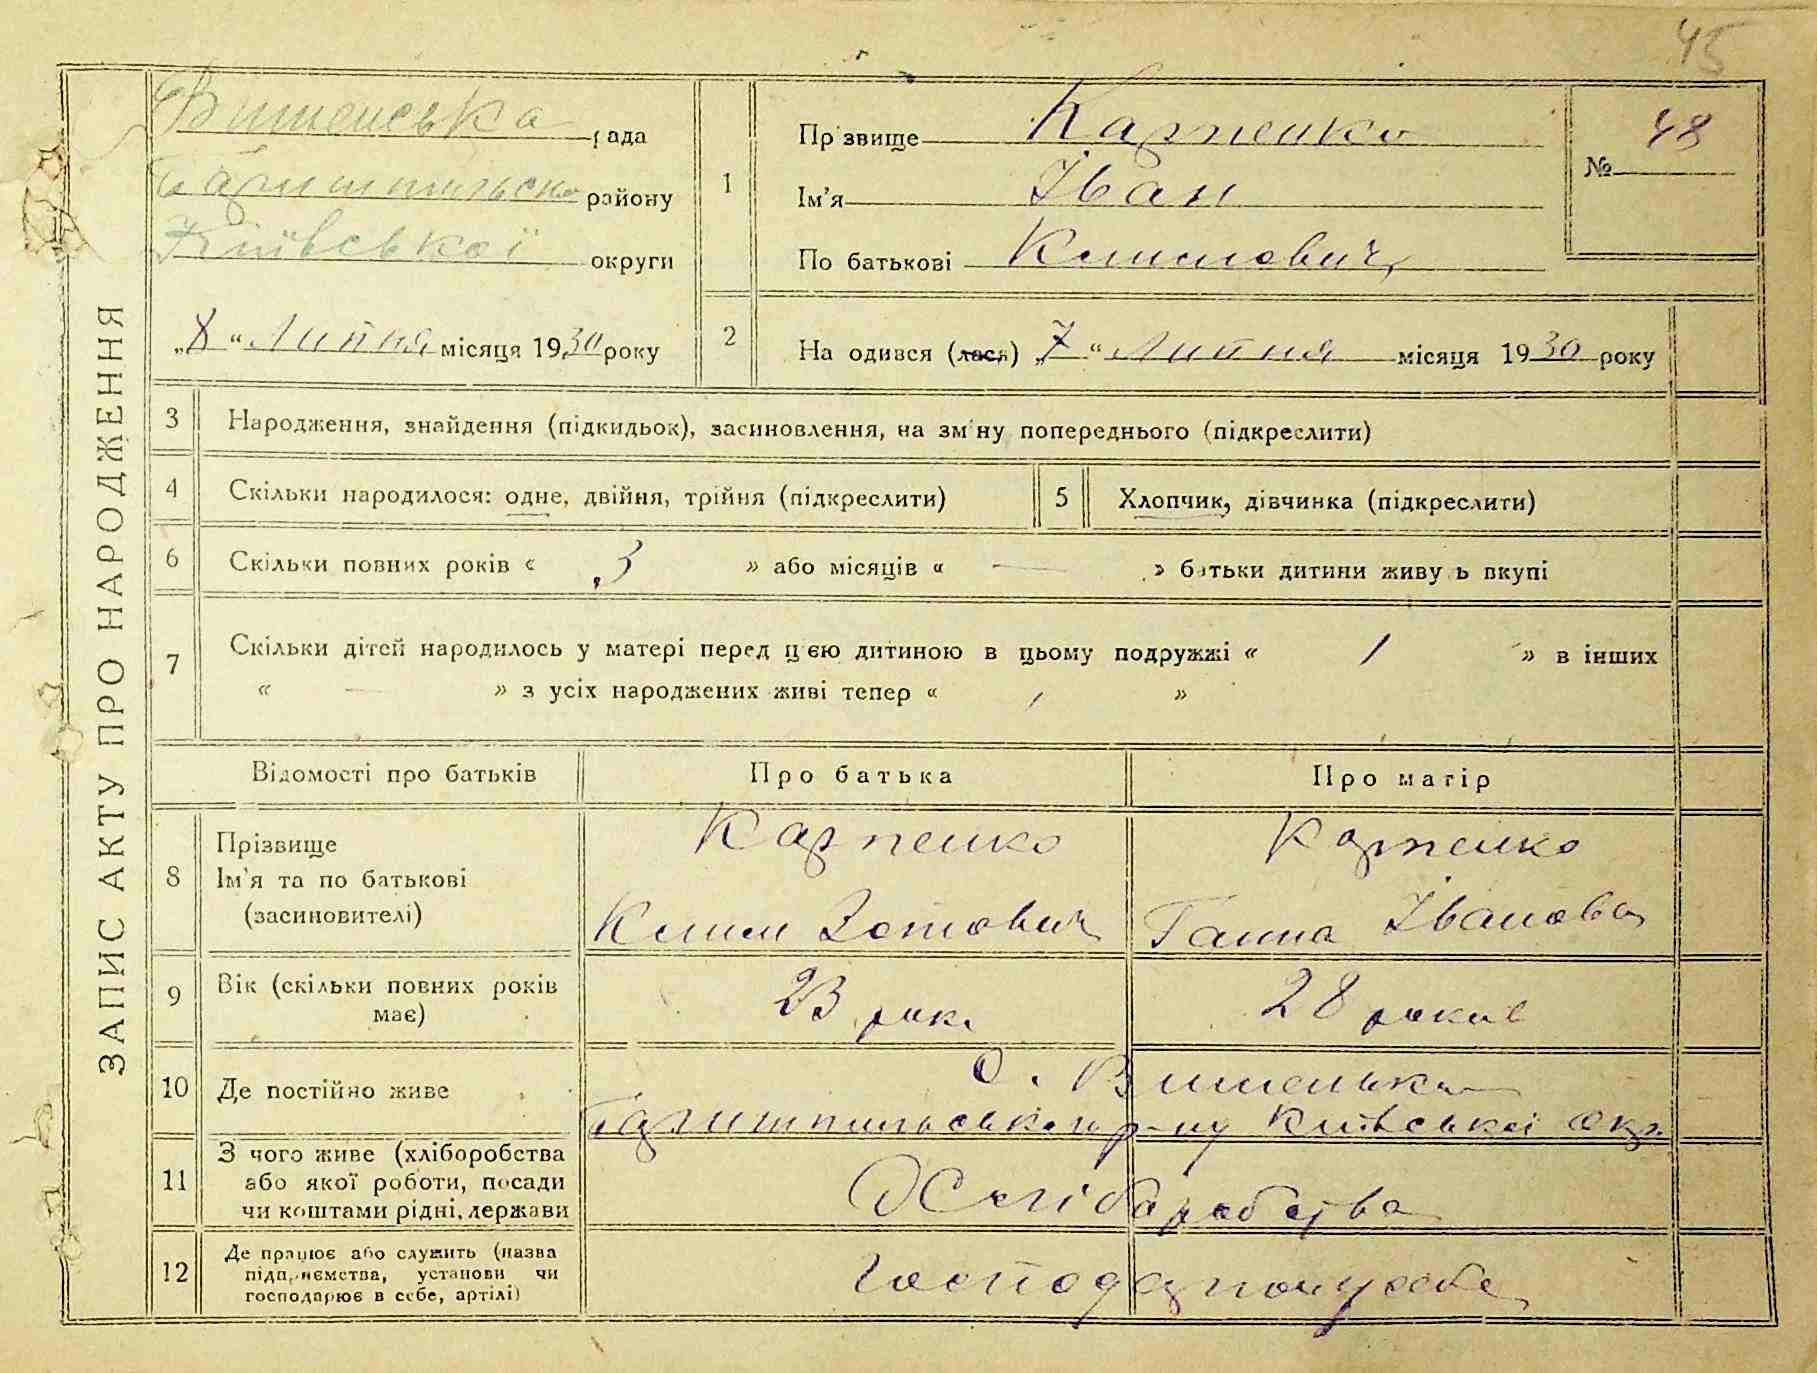 45
ЗАПИС АКТУ ПРО НАРОДЖЕННЯ
Вишенська рада
Баришпільськ району
Київської округи
„8“ Липня місяця 1930 року
1
Прізвище Карпенко
Ім'я Іван
По батькові Климович
№ 48
2
На одився (лася) „7“ Липня місяця 1930 року
3 Народження, знайдення (підкидьок), засиновлення, на зміну попереднього (підкреслити)
4 Скільки народилося: одне, двійня, трійня (підкреслити)
5 Хлопчик, дівчинка (підкреслити)
6 Скільки повних років « 3 » або місяців « — » батьки дитини живу ь вкупі
7 Скільки дітей народилось у матері перед цією дитиною в цьому подружжі « 1 » в інших
« — » з усіх народжених живі тепер « 1 »
Відомості про батьків Про батька Про матір
8 Прізвище
Ім'я та по батькові
(засиновителі)
Карпенко
Клим Зотович
Карпенко
Ганна Іванова
9 Вік (скільки повних років
має)
23 рок. 28 років
10 Де постійно живе
С. Вишеньки
Баришпільського р-ну Київської окр.
11 З чого живе (хліборобства
або якої роботи, посади
чи коштами рідні, держави
Хліборобства
12 Де працює або служить (назва
підприємства, установи чи
господарює в себе, артілі)
Господарює у себе